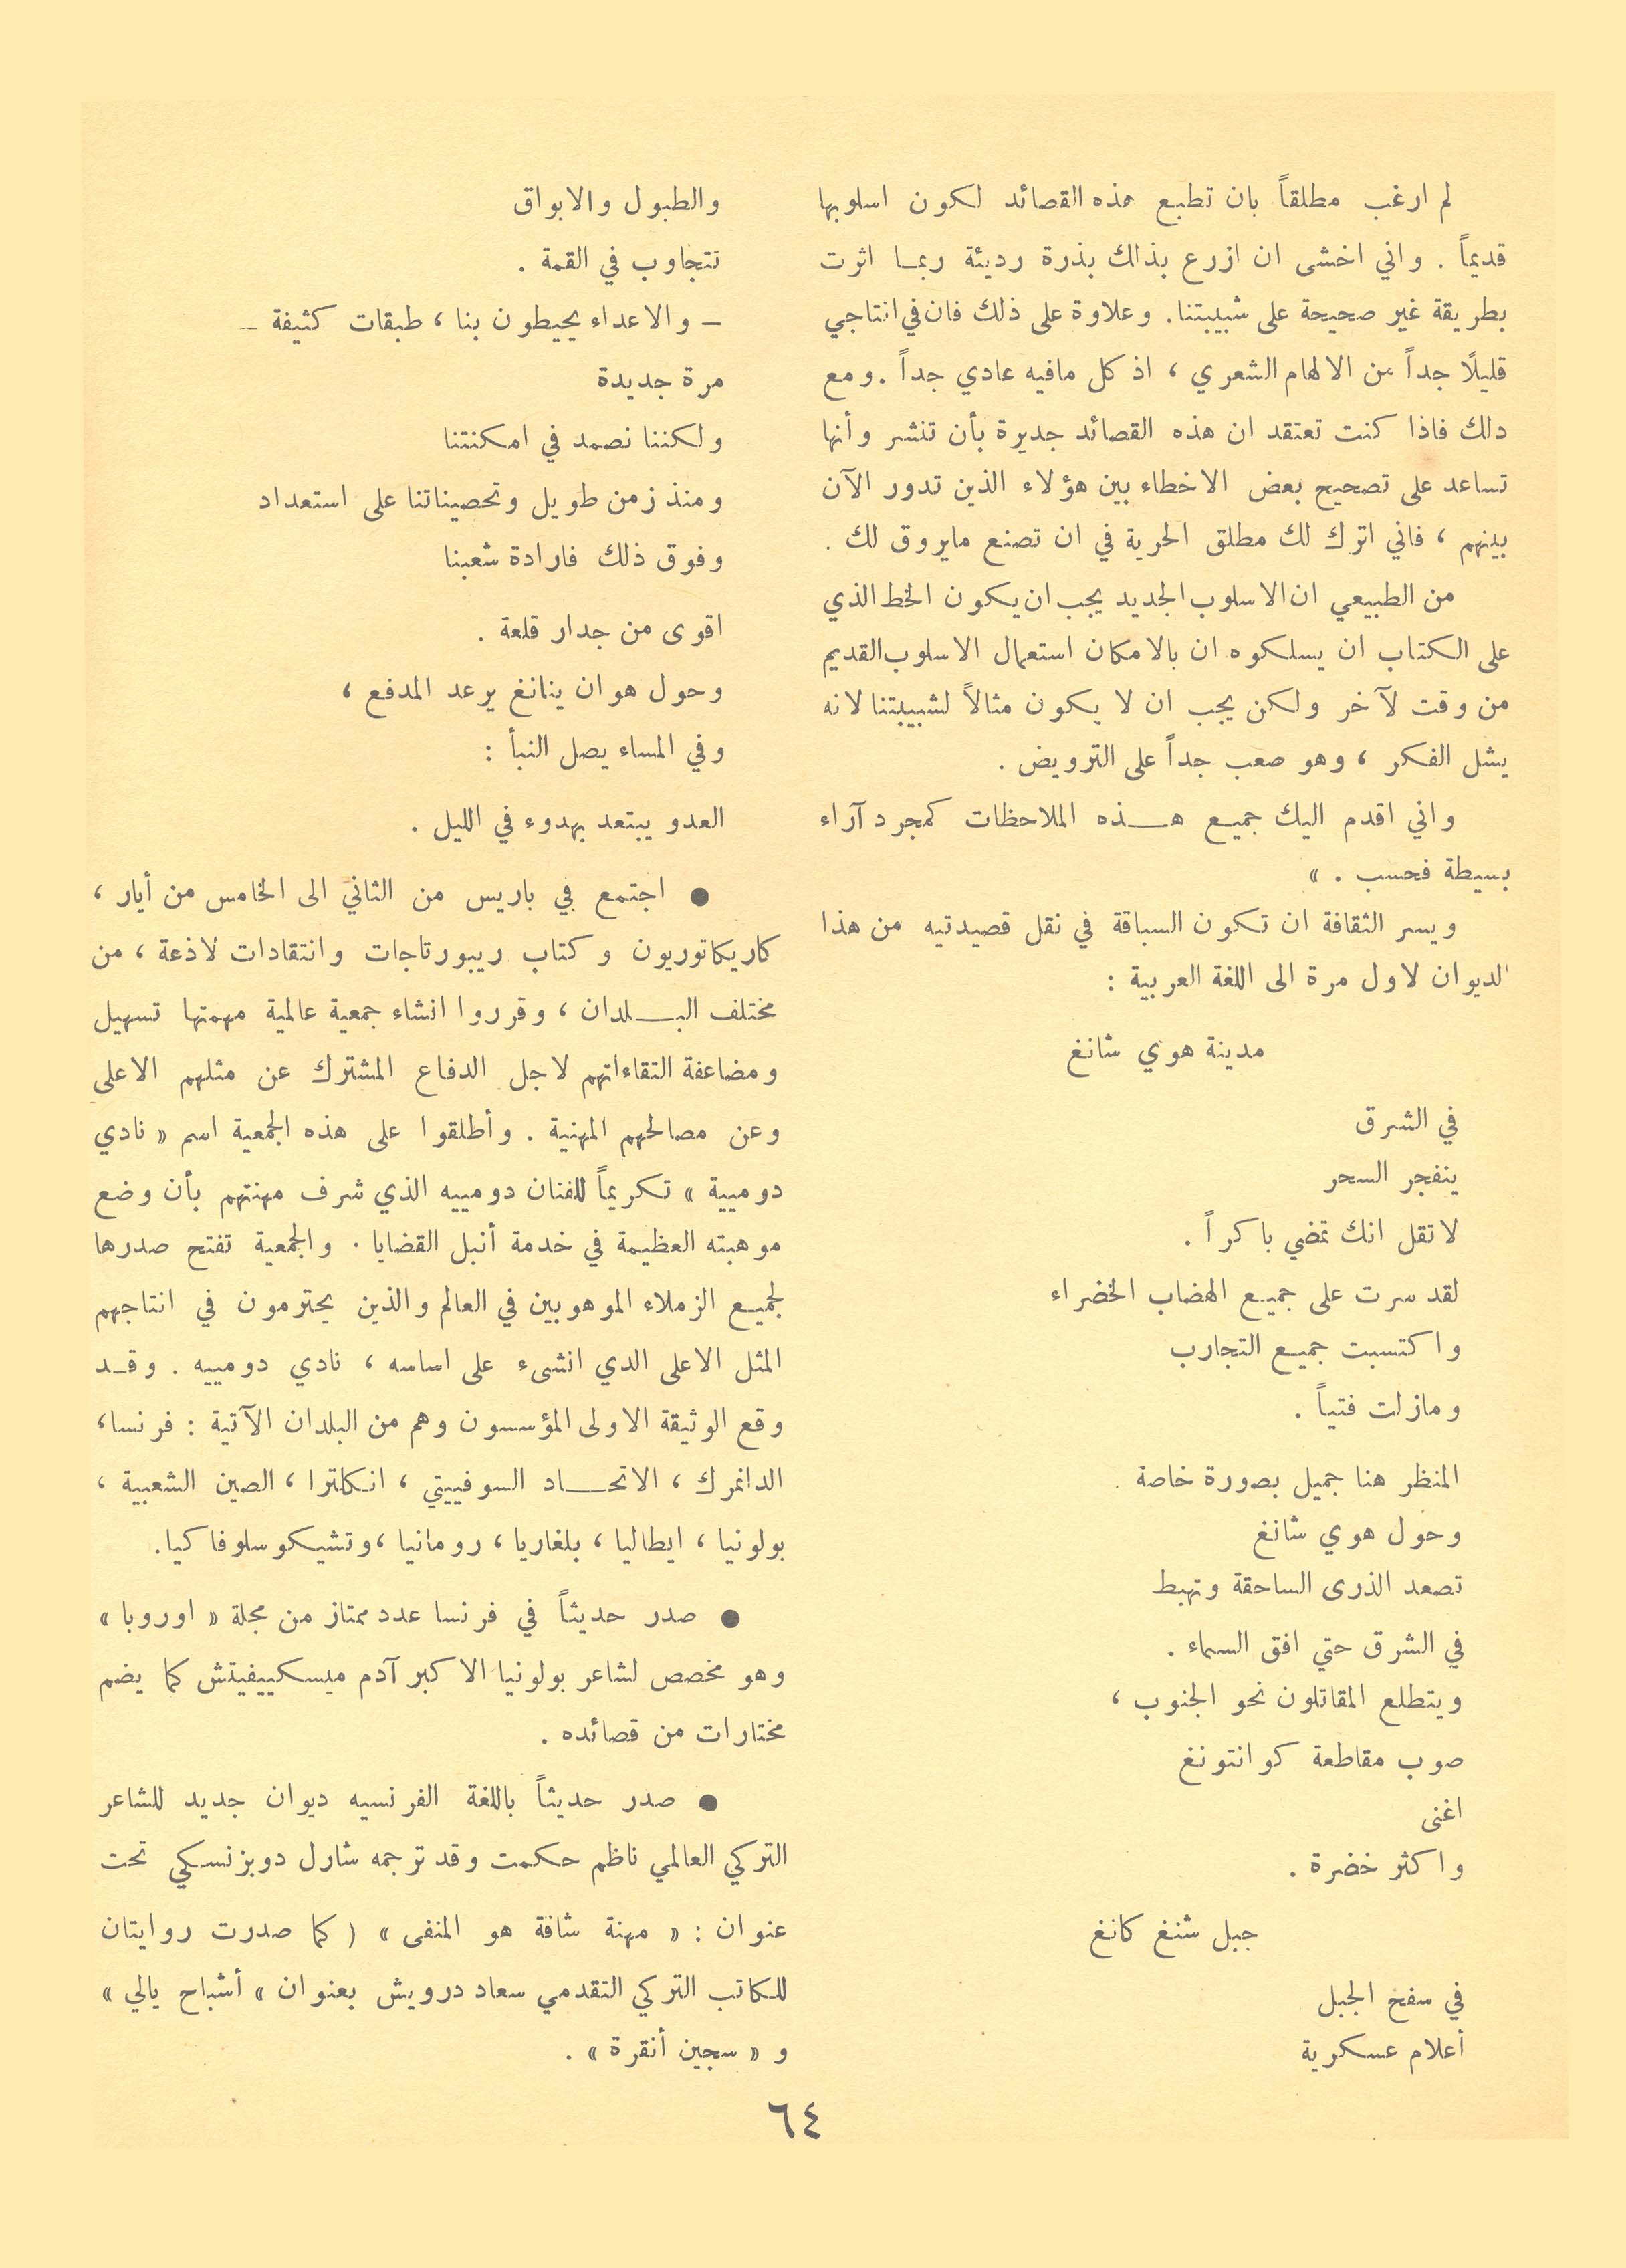 لم ارغب مطلقاً بان تطبع هذه القصائد لكون اسلوبها
قديماً . واني اخشى ان ازرع بذالك بذرة رديئة ربمـا اثرت
بطريقة غير صحيحة على شبيبتنا. وعلاوة على ذلك فان في انتاجي
قليلاً جداً من الالهام الشعري ، اذ كل مافيه عادي جداً . ومع
دلك فاذا كنت تعتقد ان هذه القصائد جديرة بأن تنشر وأنها
تساعد على تصحيح بعض الاخطاء بين هؤلاء الذين تدور الآن
بينهم ، فاني اترك لك مطلق الحرية في ان تصنع مايروق لك .
من الطبيعي ان الاسلوب الجديد يجب ان يكون الخط الذي
على الكتاب ان يسلكوه ان بالامكان استعمال الاسلوب القديم
من وقت لآخر ولكن يجب ان لا يكون مثالاً لشبيبتنا لانه
يشل الفكر ، وهو صعب جداً على الترويض .
واني اقدم اليك جميع هـــذه الملاحظات كمجرد آراء
بسيطة فحسب . »
ويسر الثقافة ان تكون السباقة في نقل قصيدتيه من هذا
الديوان لاول مرة الى اللغة العربية :
مدينة هوي شانغ
في الشرق
ينفجر السحر
لا تقل انك تمضي باكراً .
لقد سرت على جميع الهضاب الخضراء
واكتسبت جميع التجارب
ومازلت فتياً .
المنظر هنا جميل بصورة خاصة .
وحول هوي شانغ
تصعد الذرى الساحقة وتهبط
في الشرق حتي افق السماء .
ويتطلع المقاتلون نحو الجنوب ،
صوب مقاطعة كوانتونغ
اغنى
واكثر خضرة .
جبل شنغ كانغ
في سفح الجبل
أعلام عسكرية
والطبول والابواق
تتجاوب في القمة .
– والاعداء يحيطون بنا ، طبقات كثيفة –
مرة جديدة
ولكننا نصمد في امكنتنا
ومنذ زمن طويل وتحصيناتنا على استعداد
وفوق ذلك فارادة شعبنا
اقوى من جدار قلعة .
وحول هوان ينانغ يرعد المدفع ،
وفي المساء يصل النبأ :
العدو يبتعد بهدوء في الليل .
● اجتمع في باريس من الثاني الى الخامس من أيار ،
كاريكاتوريون وكتاب ريبورتاجات وانتقادات لاذعة ، من
مختلف البـــلدان ، وقرروا انشاء جمعية عالمية مهمتها تسهيل
ومضاعفة التقاءاتهم لاجل الدفاع المشترك عن مثلهم الاعلى
وعن مصالحهم المهنية . وأطلقوا على هذه الجمعية اسم « نادي
دومييية » تكريماً للفنان دومييه الذي شرف مهنتهم بأن وضع
موهبته العظيمة في خدمة أنبل القضايا . والجمعية تفتح صدرها
لجميع الزملاء الموهوبين في العالم والذين يحترمون في انتاجهم
المثل الاعلى الدي انشىء على اساسه ، نادي دومييه . وقـد
وقع الوثيقة الاولى المؤسسون وهم من البلدان الآتية : فرنسا،
الدانمرك ، الاتحـــاد السوفييتي ، انكلترا ، الصين الشعبية ،
بولونيا ، ايطاليا ، بلغاريا ، رومانيا ، وتشيكوسلوفاكيا.
● صدر حديثاً في فرنسا عدد ممتاز من مجلة « اوروبا »
وهو مخصص لشاعر بولونيا الاكبر آدم ميسكييفيتش كما يضم
مختارات من قصائده .
● صدر حديثاً باللغة الفرنسيه ديوان جديد للشاعر
التركي العالمي ناظم حكمت وقد ترجمه شارل دوبزنسكي تحت
عنوان : « مهنة شاقة هو المنفى » ( كما صدرت روايتان
للكاتب التركي التقدمي سعاد درويش بعنوان » أشباح يالي »
و « سجين أنقرة » .
٦٤